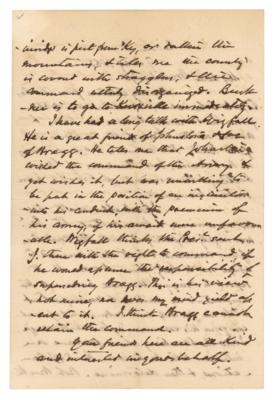 is just from Ky, or rather the
mountains, & tells me the country
is covered with stragglers, & the
command utterly disorganized. Buck-
ner is to go to Knoxville immediately.
I have had a long talk with Wigfall.
He is a great friend of Johnston & foe
of Bragg. He tells me that Johnston
wished the command of the Army &
yet wishes it, but was unwilling to
be put in the position of an
into his conduct, with the
his army, if his award were unfavor-
able. Wigfall thinks the Pres. sent
J. there with the right to command if
he would assume the responsibility of
superseding Bragg. This is his view
not mine, nor does my mind yield as-
sent to it. I think Bragg cannot
retain the command.
Your friends here are all kind
and interested in your behalf.